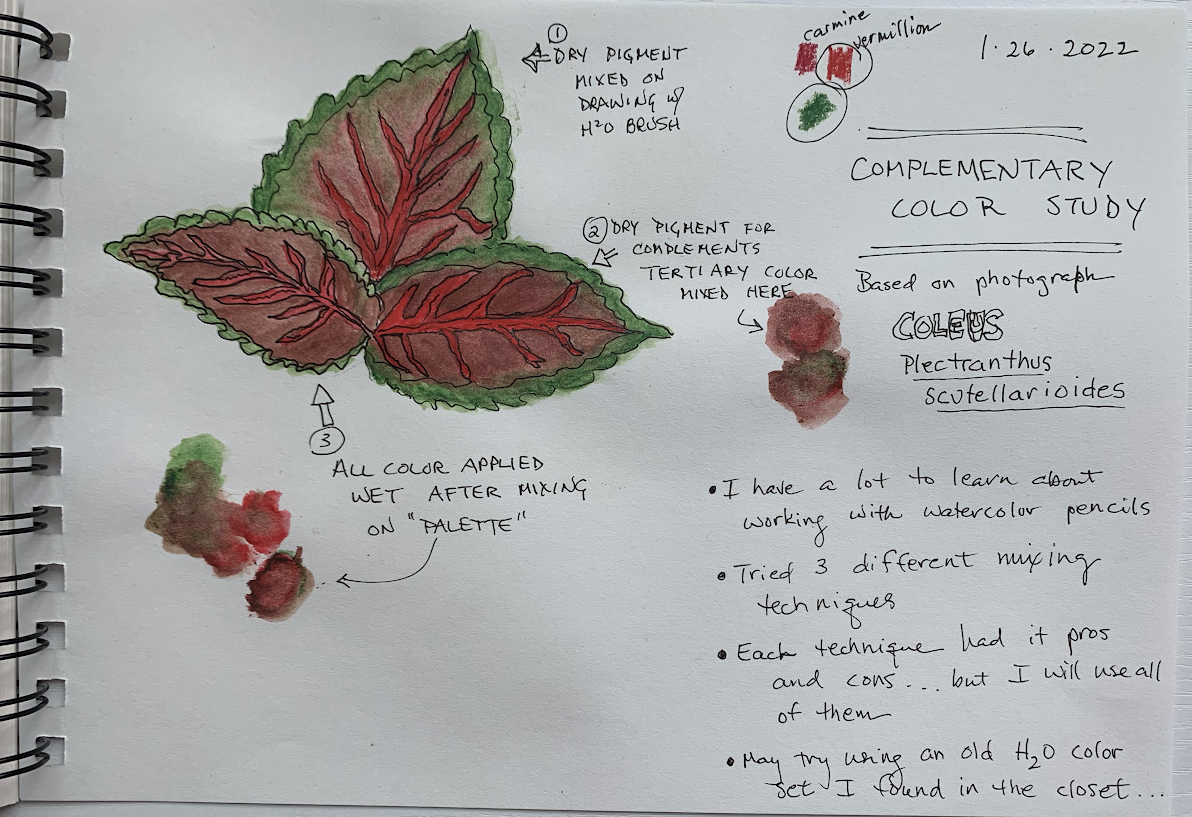 1
DRY PIGMENT
MIXED ON
DRAWING w/
H²O BRUSH
carmine
vermillion
1·26·2022
COMPLEMENTARY
COLOR STUDY
2 DRY PIGMENT FOR
COMPLEMENTS
TERTIARY COLOR
MIXED HERE
Based on photograph
COLEUS
Plectranthus
scutellarioides
3
ALL COLOR APPLIED
WET AFTER MIXING
ON "PALETTE"
• I have a lot to learn about
working with watercolor pencils
• Tried 3 different mixing
techniques
• Each technique had it pros
and cons... but I will use all
of them
• May try using an old H₂O color
set I found in the closet...